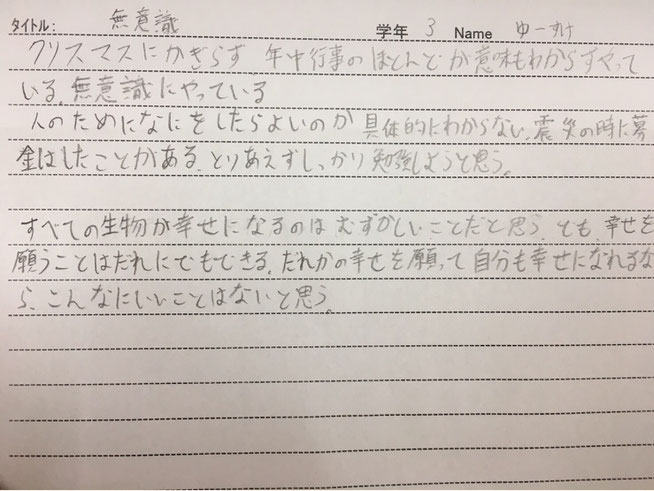 タイトル: 無意識 学年 3 Name ゆーすけ
クリスマスにかぎらず 年中行事のほとんどが意味もわからずやって
いる。無意識にやっている
人のためになにをしたらよいのか 具体的にわからない。震災の時に募
金はしたことがある。とりあえずしっかり勉強しようと思う。
すべての生物が幸せになるのは むずかしいことだと思う。でも、幸せを
願うことはだれにでもできる。だれかの幸せを願って 自分も幸せになれるな
ら、こんなにいいことはないと思う。